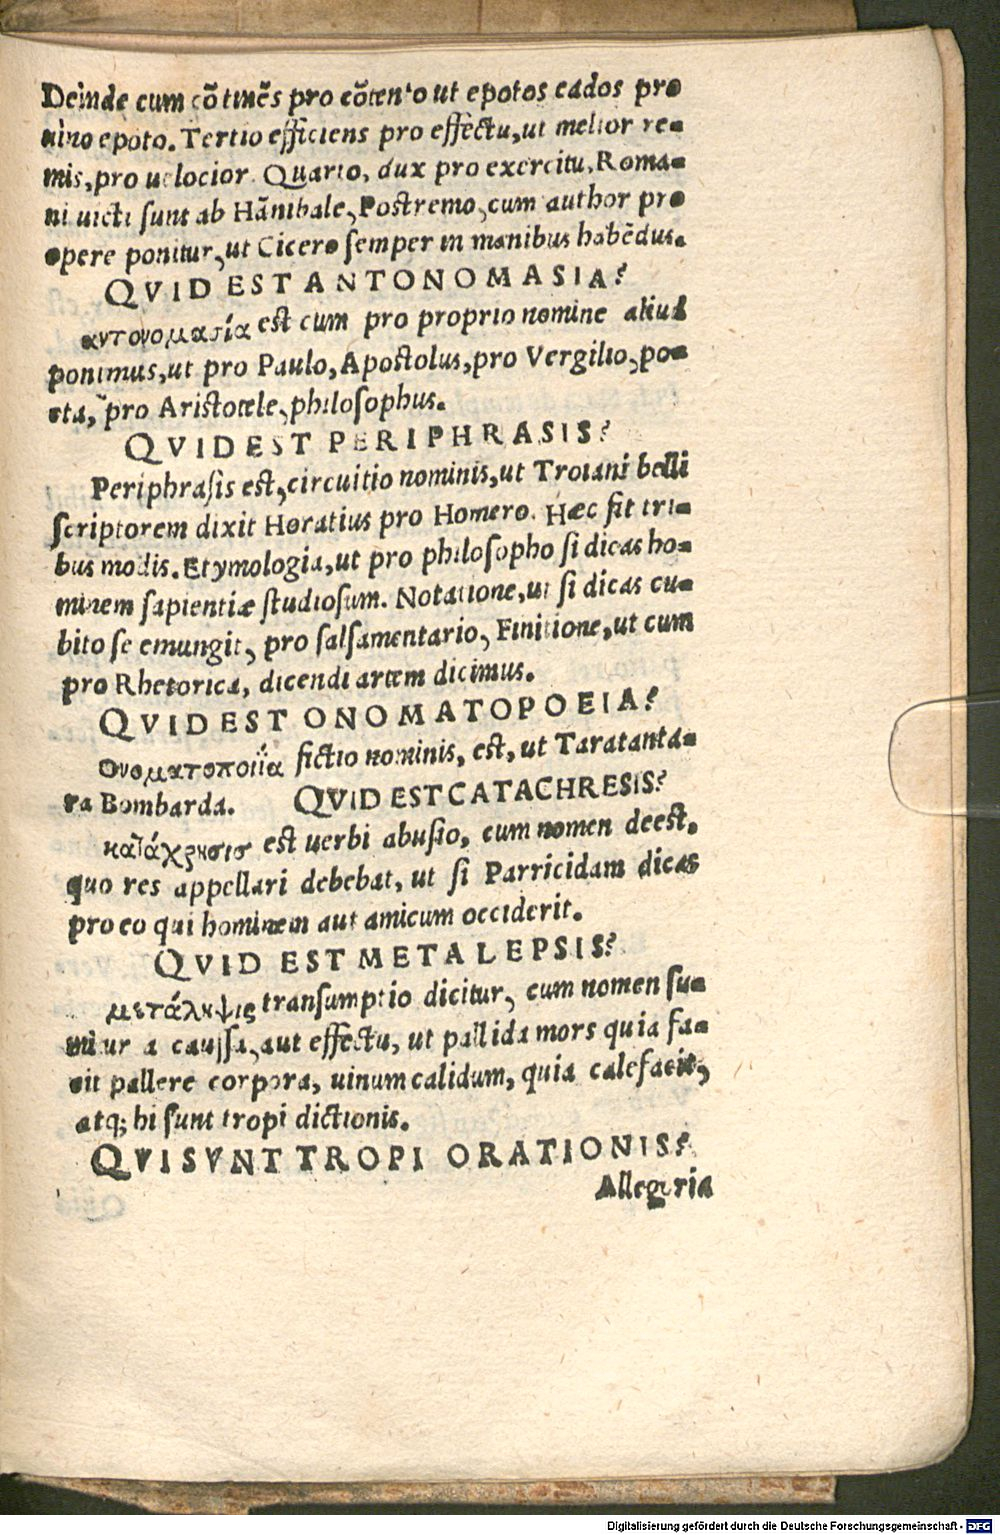 Deinde cum cõtinẽs pro cõtento ut epotos cados pro
uino epoto. Tertio efficiens pro effectu, ut melior re-
mis, pro uelocior. Quarto, dux pro exercitu, Roma-
ni uicti sunt ab Hãnibale, Postremo, cum author pro
opere ponitur, ut Cicero semper in manibus habẽdus.
QVID EST ANTONOMASIA?
αντονομασία est cum pro proprio nomine aliud
ponimus, ut pro Paulo, Apostolus, pro Vergilio, po-
eta, pro Aristotele, philosophus.
QVID EST PERIPHRASIS?
Periphrasis est, circuitio nominis, ut Troiani belli
scriptorem dixit Horatius pro Homero. Hæc fit tri-
bus modis. Etymologia, ut pro philosopho si dicas ho-
minem sapientiæ studiosum. Notatione, ut si dicas cu-
bito se emungit, pro salsamentario, Finitione, ut cum
pro Rhetorica, dicendi artem dicimus.
QVID EST ONOMATOPOEIA?
Ονοματοποιΐα fictio nominis, est, ut Taratanta-
ra Bombarda. QVID EST CATACHRESIS?
κατάχρησισ est uerbi abusio, cum nomen deest.
quo res appellari debebat, ut si Parricidam dicas
pro eo qui hominem aut amicum occiderit.
QVID EST METALEPSIS?
μετάληψις transumptio dicitur, cum nomen su-
mitur a caussa, aut effectu, ut pallida mors quia fa-
cit pallere corpora, uinum calidum, quia calefacit,
atq; hi sunt tropi dictionis.
QVI SVNT TROPI ORATIONIS?
Allegoria
Digitalisierung gefördert durch die Deutsche Forschungsgemeinschaft - DFG